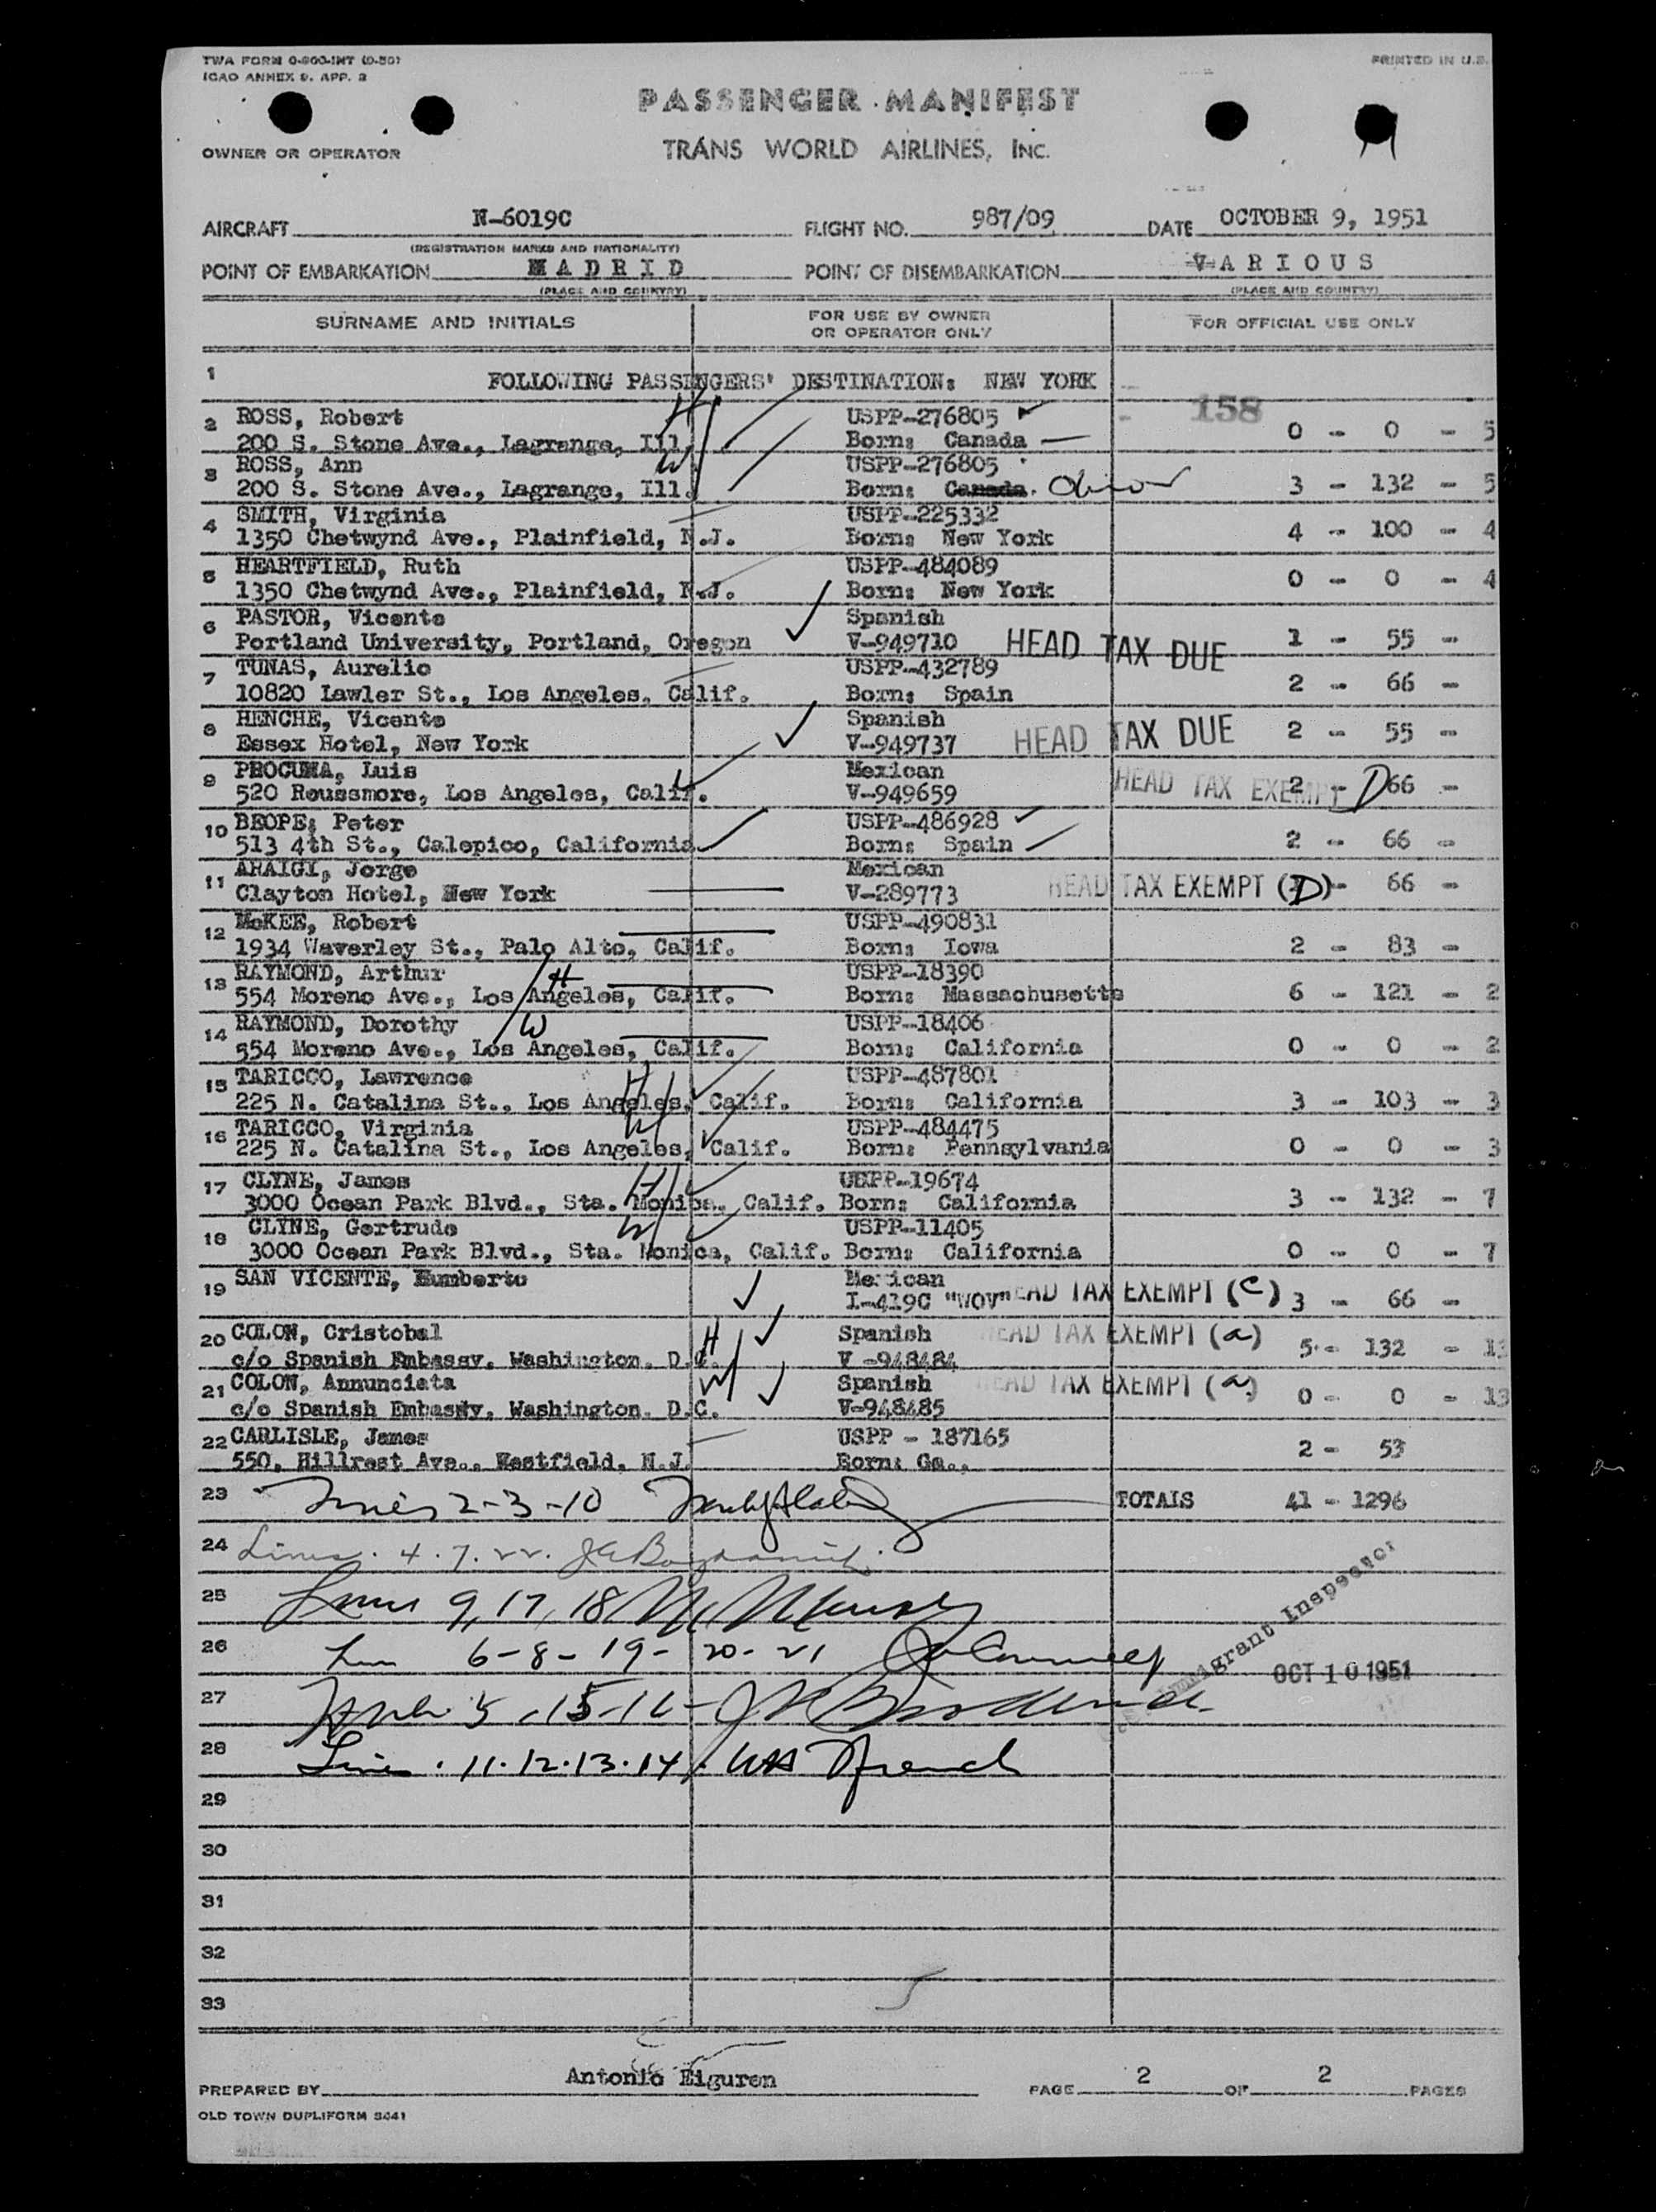 TWA FORM 0-800-INT (0-50)
ICAO ANNEX 9. APP. 2
PRINTED IN U.S.
PASSENGER MANIFEST
OWNER OR OPERATOR
TRANS WORLD AIRLINES, INC.
AIRCRAFT N-6019C FLIGHT NO. 987/09 DATE OCTOBER 9, 1951
(REGISTRATION MARKS AND NATIONALITY)
POINT OF EMBARKATION MADRID POINT OF DISEMBARKATION VARIOUS
(PLACE AND COUNTRY) (PLACE AND COUNTRY)
SURNAME AND INITIALS FOR USE BY OWNER OR OPERATOR ONLY FOR OFFICIAL USE ONLY
1 FOLLOWING PASSENGERS' DESTINATION: NEW YORK
158
2 ROSS, Robert H USPP-276805
200 S. Stone Ave., Lagrange, Ill. Born: Canada 0 - 0 - 5
3 ROSS, Ann W USPP-276805
200 S. Stone Ave., Lagrange, Ill. Born: Canada. 3 - 132 - 5
4 SMITH, Virginia USPP-225332
1350 Chetwynd Ave., Plainfield, N.J. Born: New York 4 - 100 - 4
5 HEARTFIELD, Ruth USPP-484089
1350 Chetwynd Ave., Plainfield, N.J. Born: New York 0 - 0 - 4
6 PASTOR, Vicente Spanish
Portland University, Portland, Oregon V-949710 HEAD TAX DUE 1 - 55 -
7 TUNAS, Aurelio USPP-432789
10820 Lawler St., Los Angeles, Calif. Born: Spain 2 - 66 -
8 HENCHE, Vicente Spanish
Essex Hotel, New York V-949737 HEAD TAX DUE 2 - 55 -
9 PROCUNA, Luis Mexican
520 Roussmore, Los Angeles, Calif. V-949659 HEAD TAX EXEMPT D 2 - 66 -
10 BEOPE, Peter USPP-486928
513 4th St., Calepico, California Born: Spain 2 - 66 -
11 ARAIGI, Jorge Mexican
Clayton Hotel, New York V-289773 HEAD TAX EXEMPT (D) - 66 -
12 McKEE, Robert USPP-490831
1934 Waverley St., Palo Alto, Calif. Born: Iowa 2 - 83 -
13 RAYMOND, Arthur H USPP-18390
554 Moreno Ave., Los Angeles, Calif. Born: Massachusetts 6 - 121 - 2
14 RAYMOND, Dorothy W USPP-18406
554 Moreno Ave., Los Angeles, Calif. Born: California 0 - 0 - 2
15 TARICCO, Lawrence H USPP-487801
225 N. Catalina St., Los Angeles, Calif. Born: California 3 - 103 - 3
16 TARICCO, Virginia W USPP-484475
225 N. Catalina St., Los Angeles, Calif. Born: Pennsylvania 0 - 0 - 3
17 CLYNE, James H USPP-19674
3000 Ocean Park Blvd., Sta. Monica, Calif. Born: California 3 - 132 - 7
18 CLYNE, Gertrude W USPP-11405
3000 Ocean Park Blvd., Sta. Monica, Calif. Born: California 0 - 0 - 7
19 SAN VICENTE, Humberto Mexican
I-419C "WOV" HEAD TAX EXEMPT (C) 3 - 66 -
20 COLON, Cristobal H Spanish HEAD TAX EXEMPT (a)
c/o Spanish Embassy, Washington, D.C. V-948484 5 - 132 - 13
21 COLON, Annunciata W Spanish HEAD TAX EXEMPT (a)
c/o Spanish Embassy, Washington, D.C. V-948485 0 - 0 - 13
22 CARLISLE, James USPP - 187165
550, Hillrest Ave., Westfield, N.J. Born: Ga., 2 - 53
23 Lines 2-3-10 TOTALS 41 - 1296
24 Lines. 4.7.22.
25 Lines 9, 17, 18
26 6-8-19-20-21
Immigrant Inspector
OCT 10 1951
27 5, 15-16-
28 Lines. 11.12.13.14, French
29
30
31
32
33
PREPARED BY Antonio Eiguren PAGE 2 OF 2 PAGES
OLD TOWN DUPLIFORM 8441